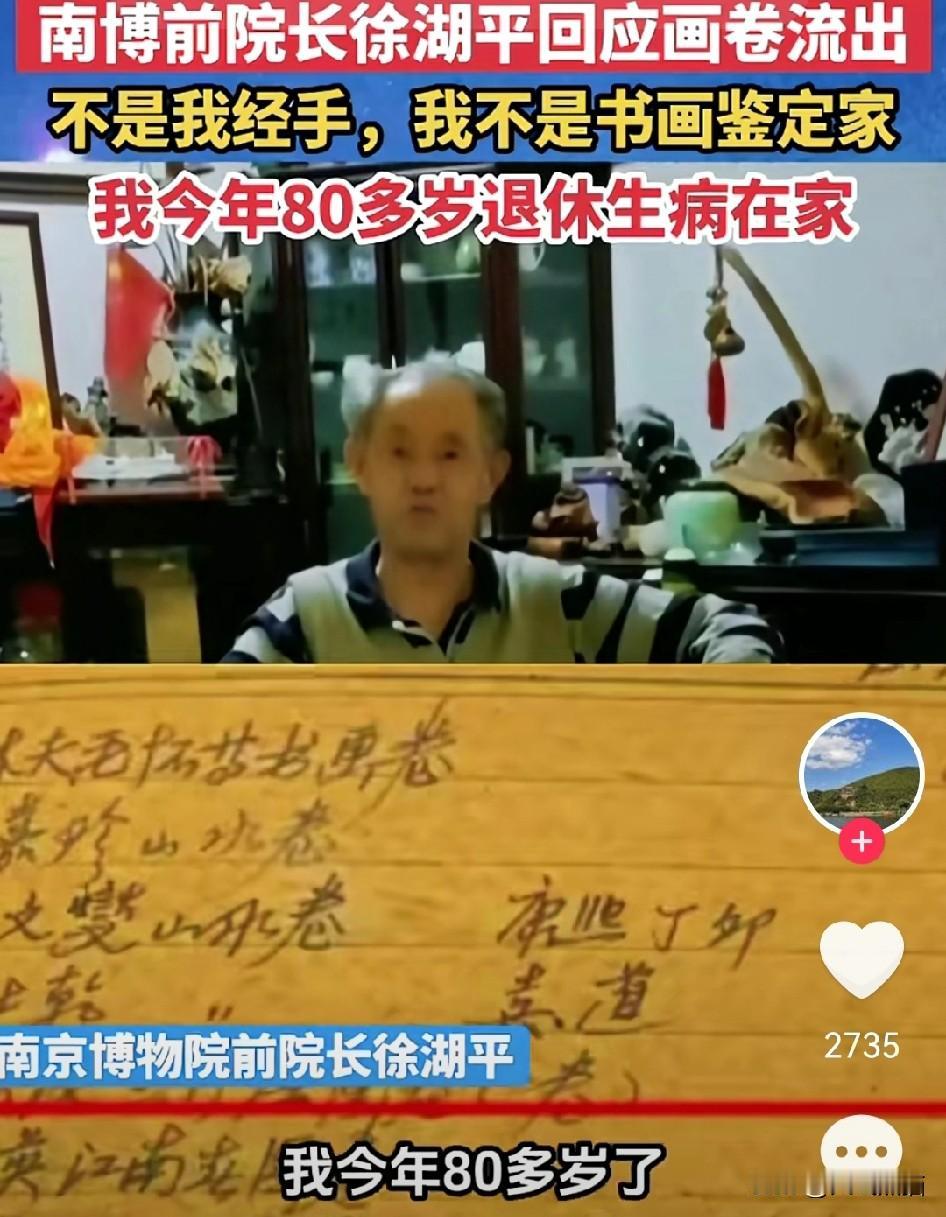 南博前院长徐湖平回应画卷流出
不是我经手，我不是书画鉴定家
我今年80多岁退休生病在家
书画卷
山水卷
山水卷 康熙丁卯
乾 〃
南京博物院前院长徐湖平
2735
江南春
我今年80多岁了